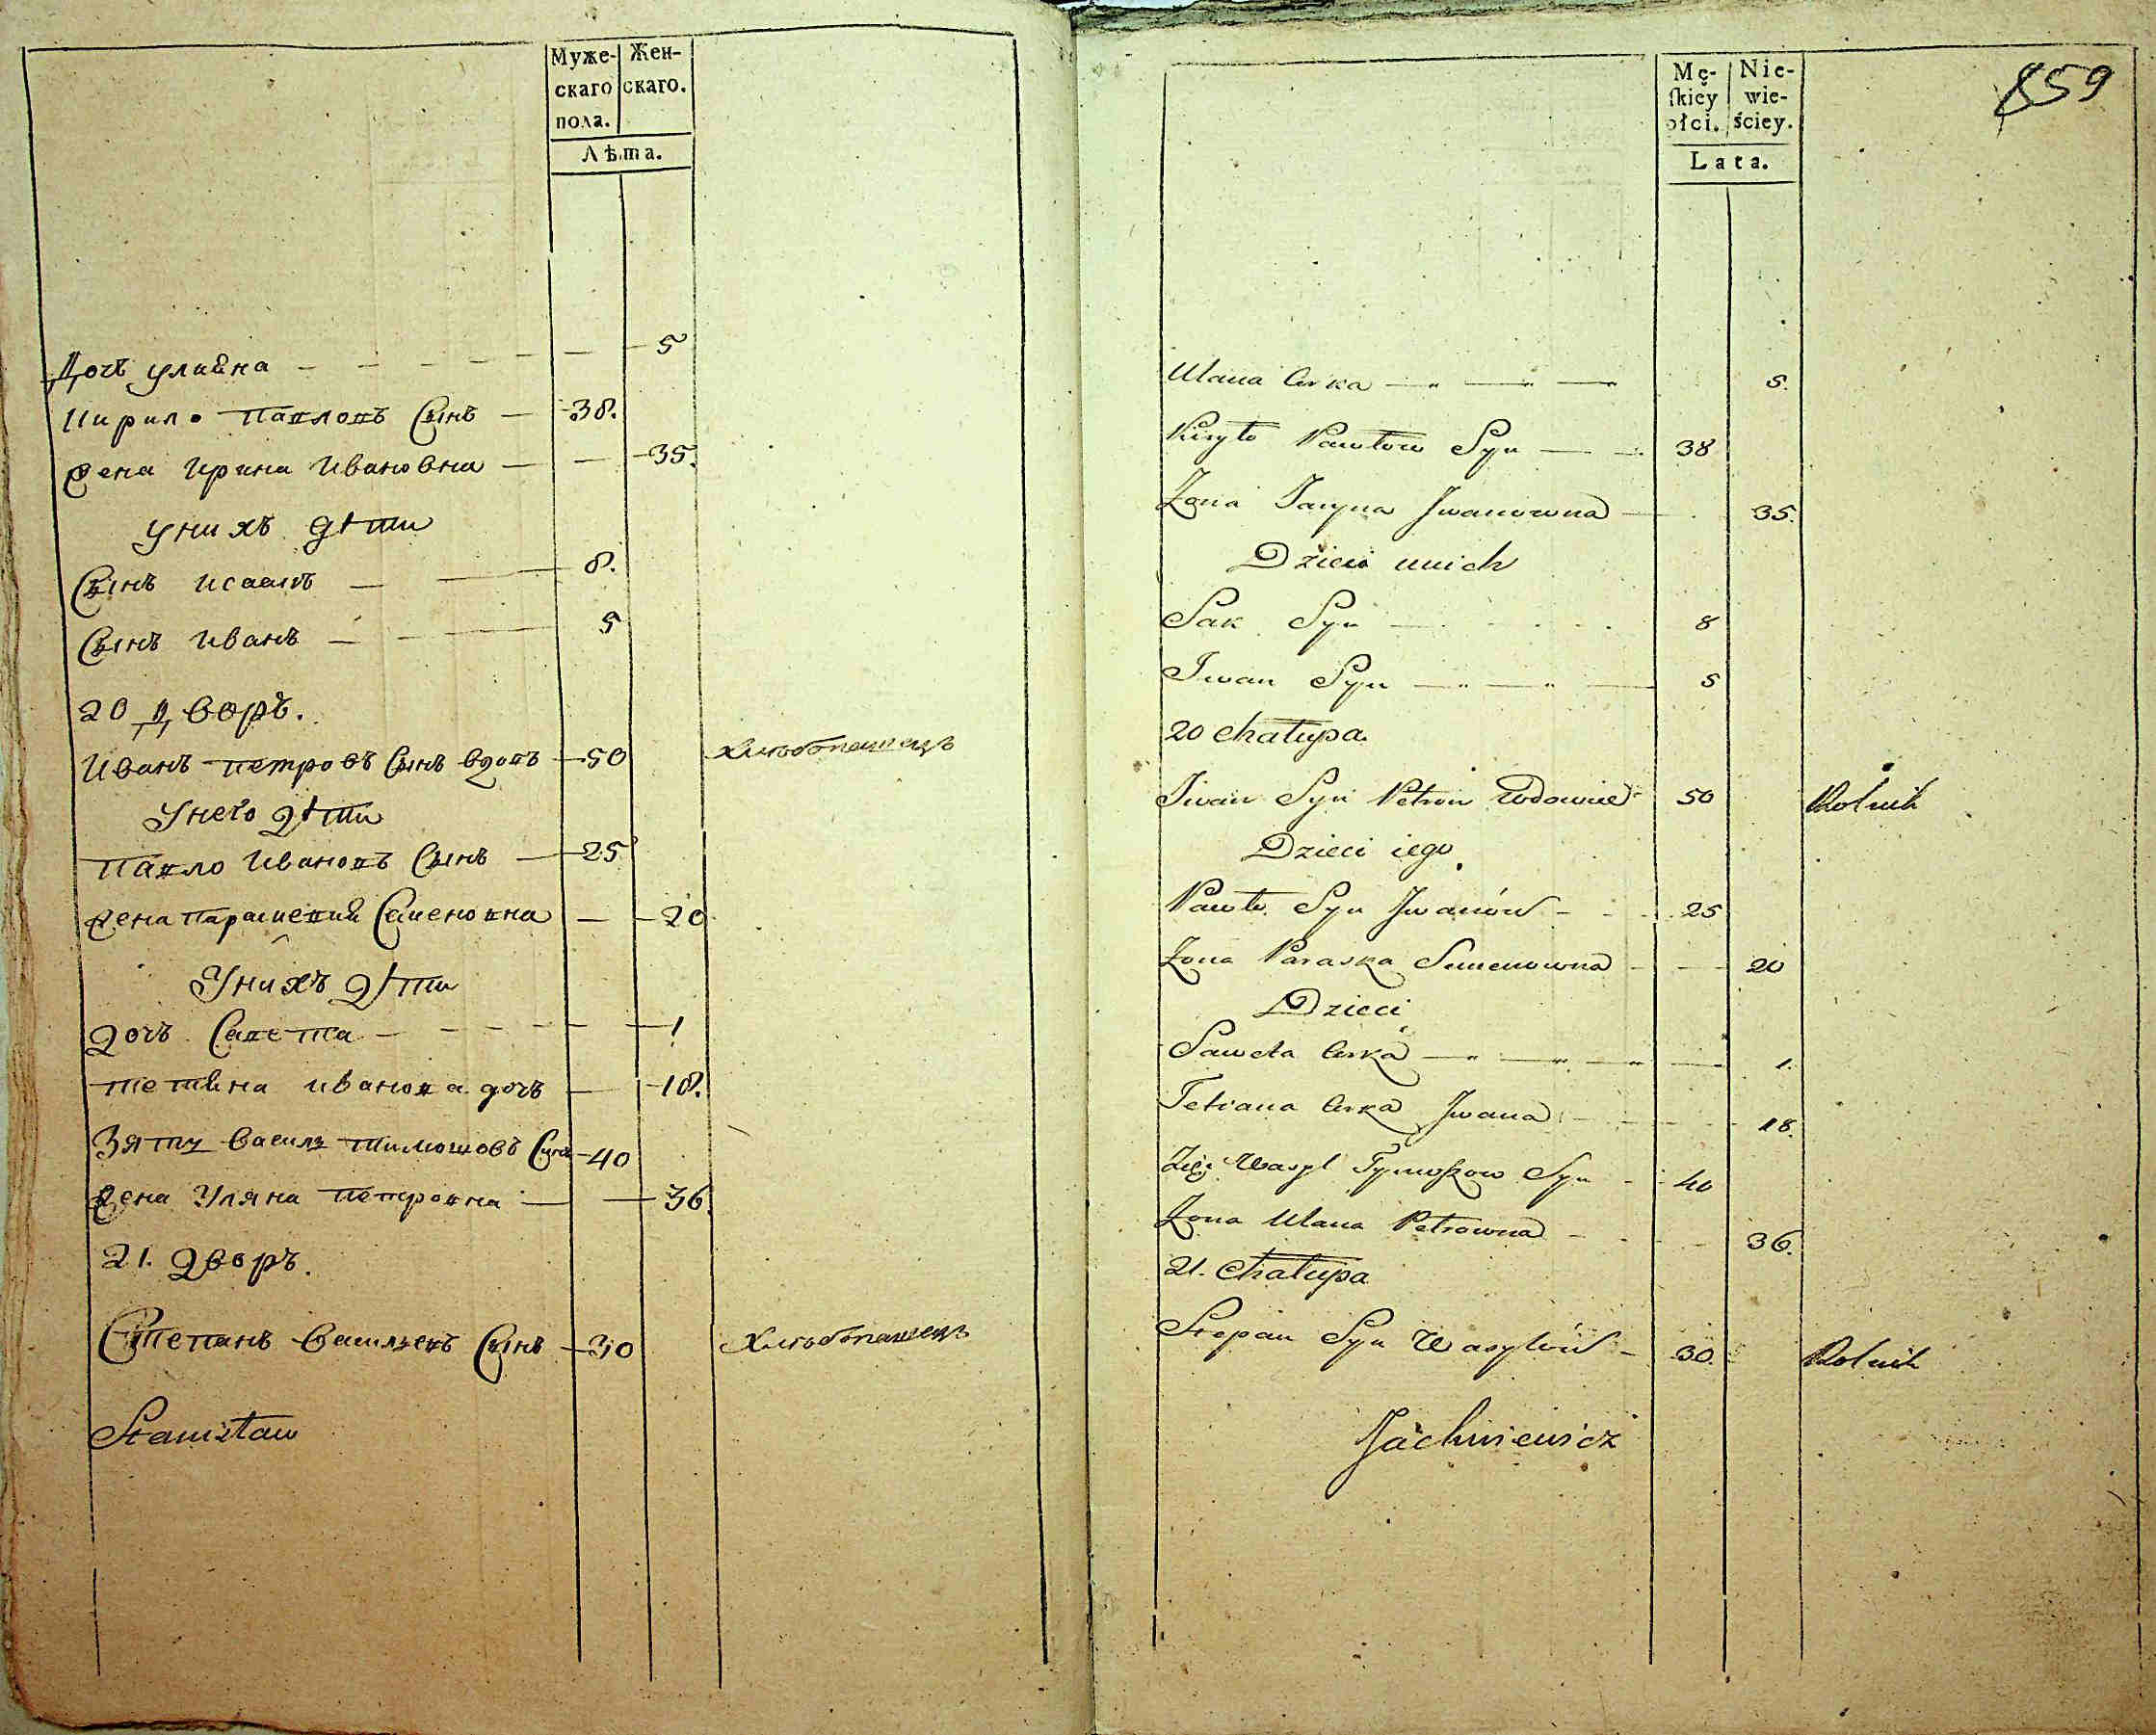 Муже-
скаго
пола.
Жен-
скаго.
Лѣта.
Дочь улияна 5
Кирило Павловъ Сынъ 38.
жена Ирина Ивановна 35.
у нихъ дѣти
Сынъ исаакъ 8.
Сынъ иванъ 5
20 Дворъ.
Иванъ петровъ Сынъ вдовъ 50 хлѣбопашецъ
У него дѣти
Павло Ивановъ Сынъ 25
жена Параскевия Семеновна 20
У нихъ дѣти
дочь Савета 1
тетяна иванова дочь 18.
Зять Василь тимошовъ Сынъ 40
жена Уляна петровна 36.
21. дворъ.
Степанъ Васильевъ Сынъ 30 хлѣбопашецъ
Stanisław
Mę-
ſkiey
płci.
Nie-
wie-
ściey.
Lata.
859
Ulana Curka 5.
Kiryło Pawłow Syn 38
Zona Jaryna Jwanowna 35.
Dzieci unich
Sak Syn 8
Iwan Syn 5
20 Chałupa.
Iwan Syn Petrow Wdowiec 50 Rolnik
Dzieci iego
Pawło Syn Jwanów 25
Zona Paraska Semenowna 20
Dzieci
Saweta Curka 1.
Tetiana Curka Jwana 18.
Zięć Wasyl Tymoszow Syn 40
Zona Ulana Petrowna 36.
21. Chałupa
Stepan Syn Wasylów 30. Rolnik
Jachniewicz